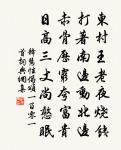 東村王老夜燒錢
打著南邊動北邊
赤骨歷窮夸富貴
日高三丈尚憨眠
釋慧性偈頌一百零一
首詞典網集